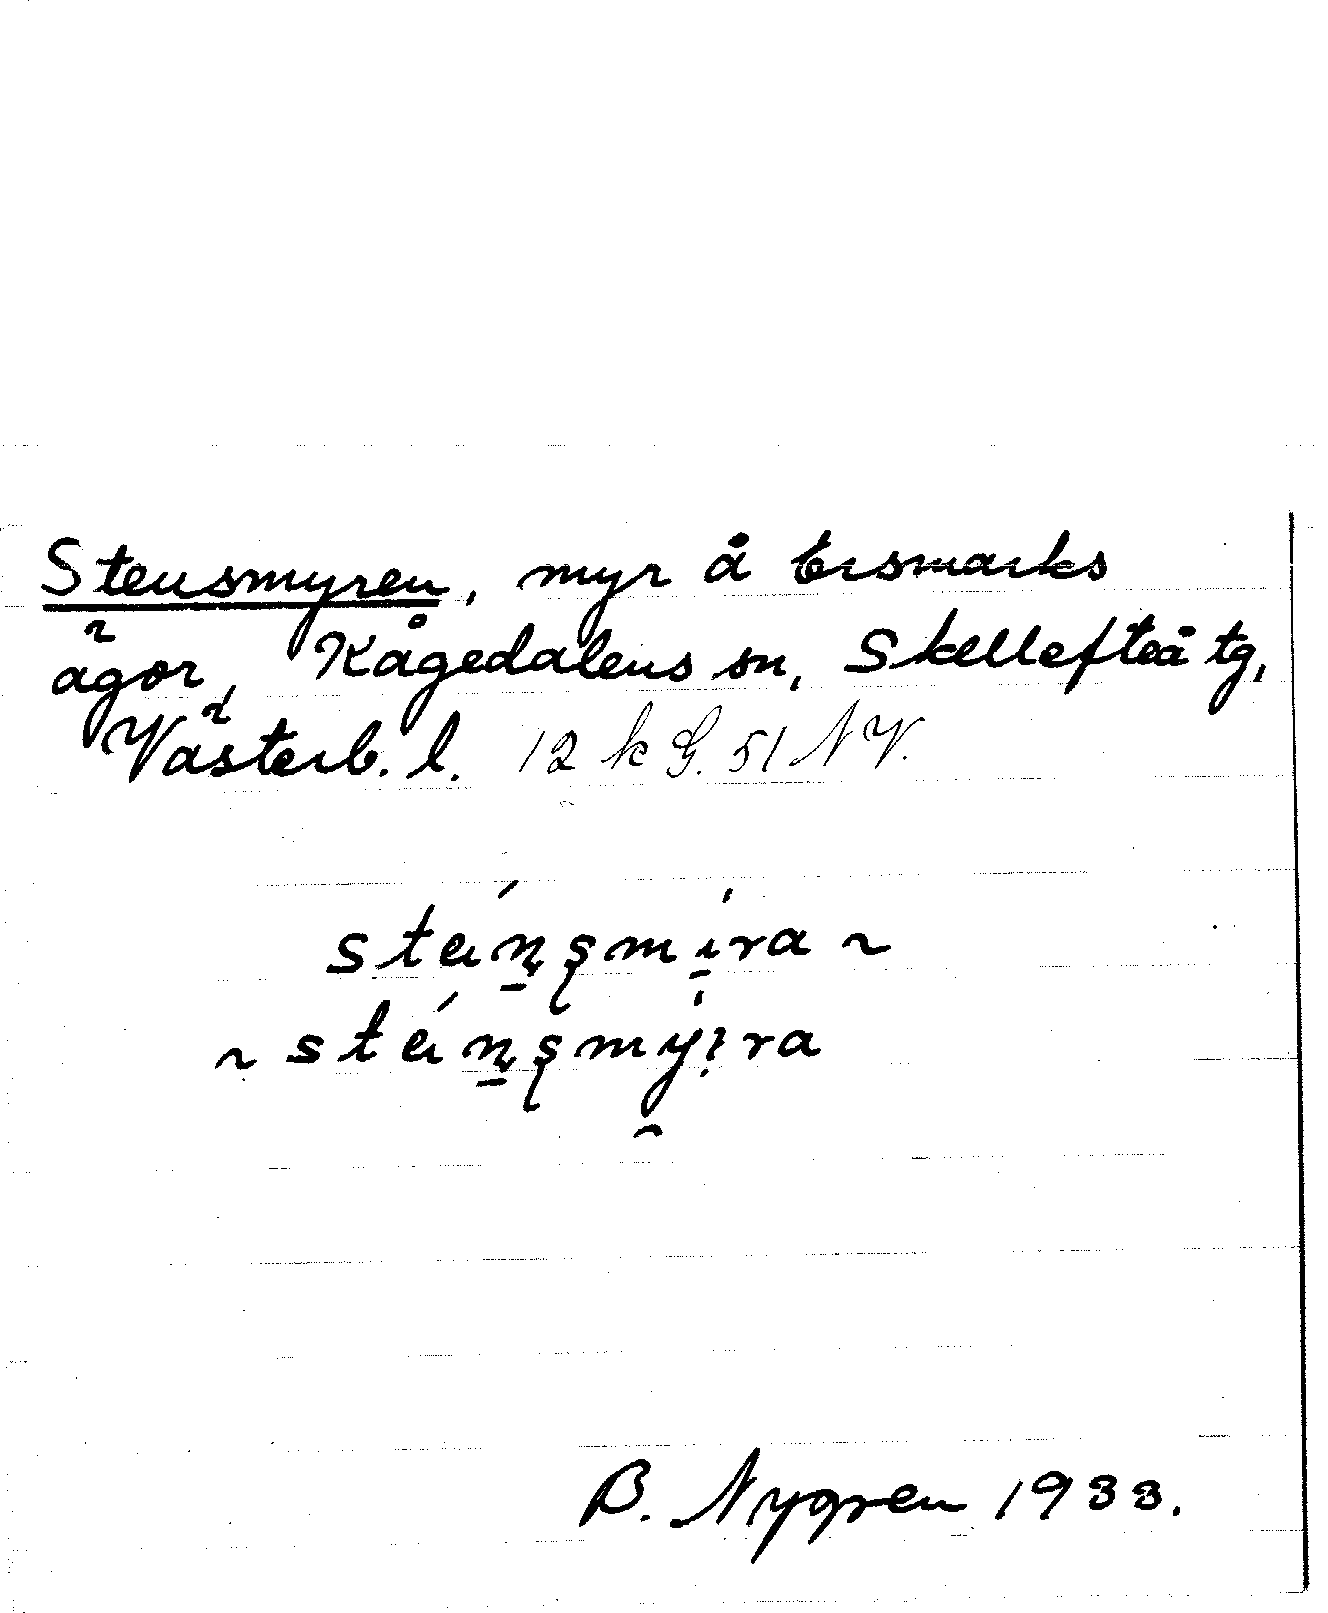 Stensmyren, myr å Ersmarks
ägor, Kågedalens sn, Skellefteå tg,
Västerb. l. 12 k G. 51 NV.
stéi̯n̥şmi̱ra ~
~ stéi̯n̥şmyi̯ra
B. Nygren 1933.